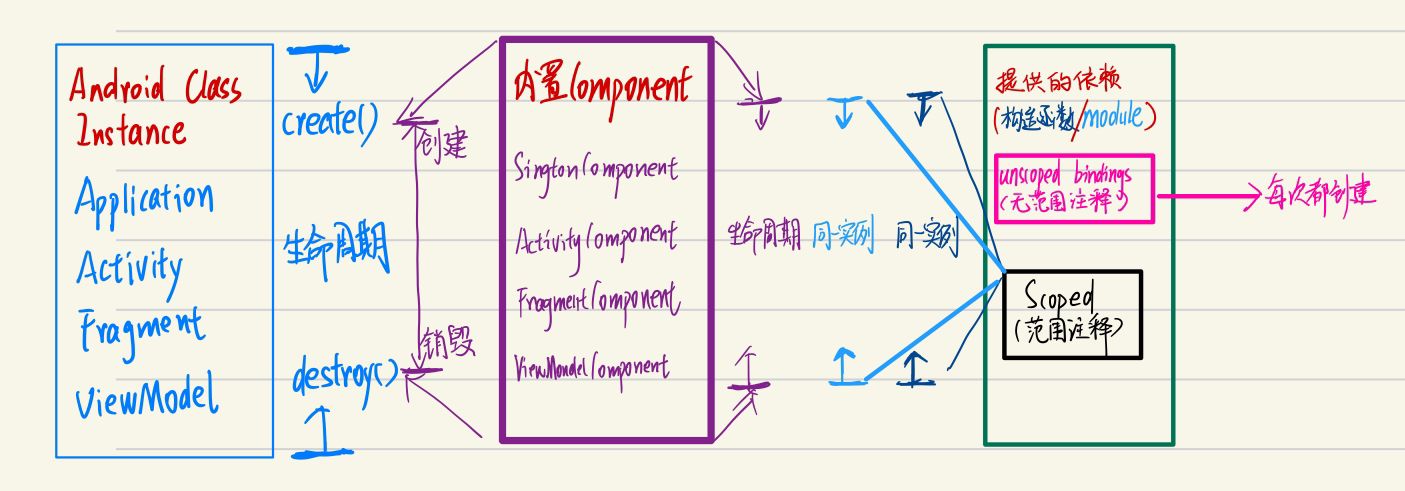 Android Class
Instance
Application
Activity
Fragment
ViewModel
create()
生命周期
destroy()
创建
销毁
内置Component
SingtonComponent
ActivityComponent
FragmentComponent
ViewMondelComponent
生命周期
同一实例
同一实例
提供的依赖
(构造函数/module)
unscoped bindings
(无范围注释)
每次都创建
Scoped
(范围注释)